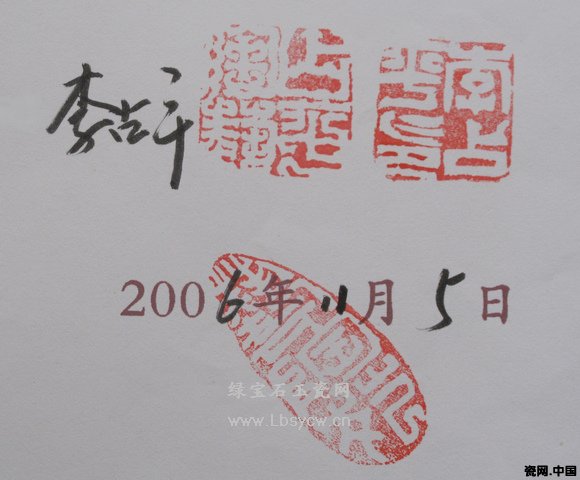 李占平
李占平印
2006年11月5日
绿宝石玉瓷网
www.Lbsycw.cn
瓷网.中国